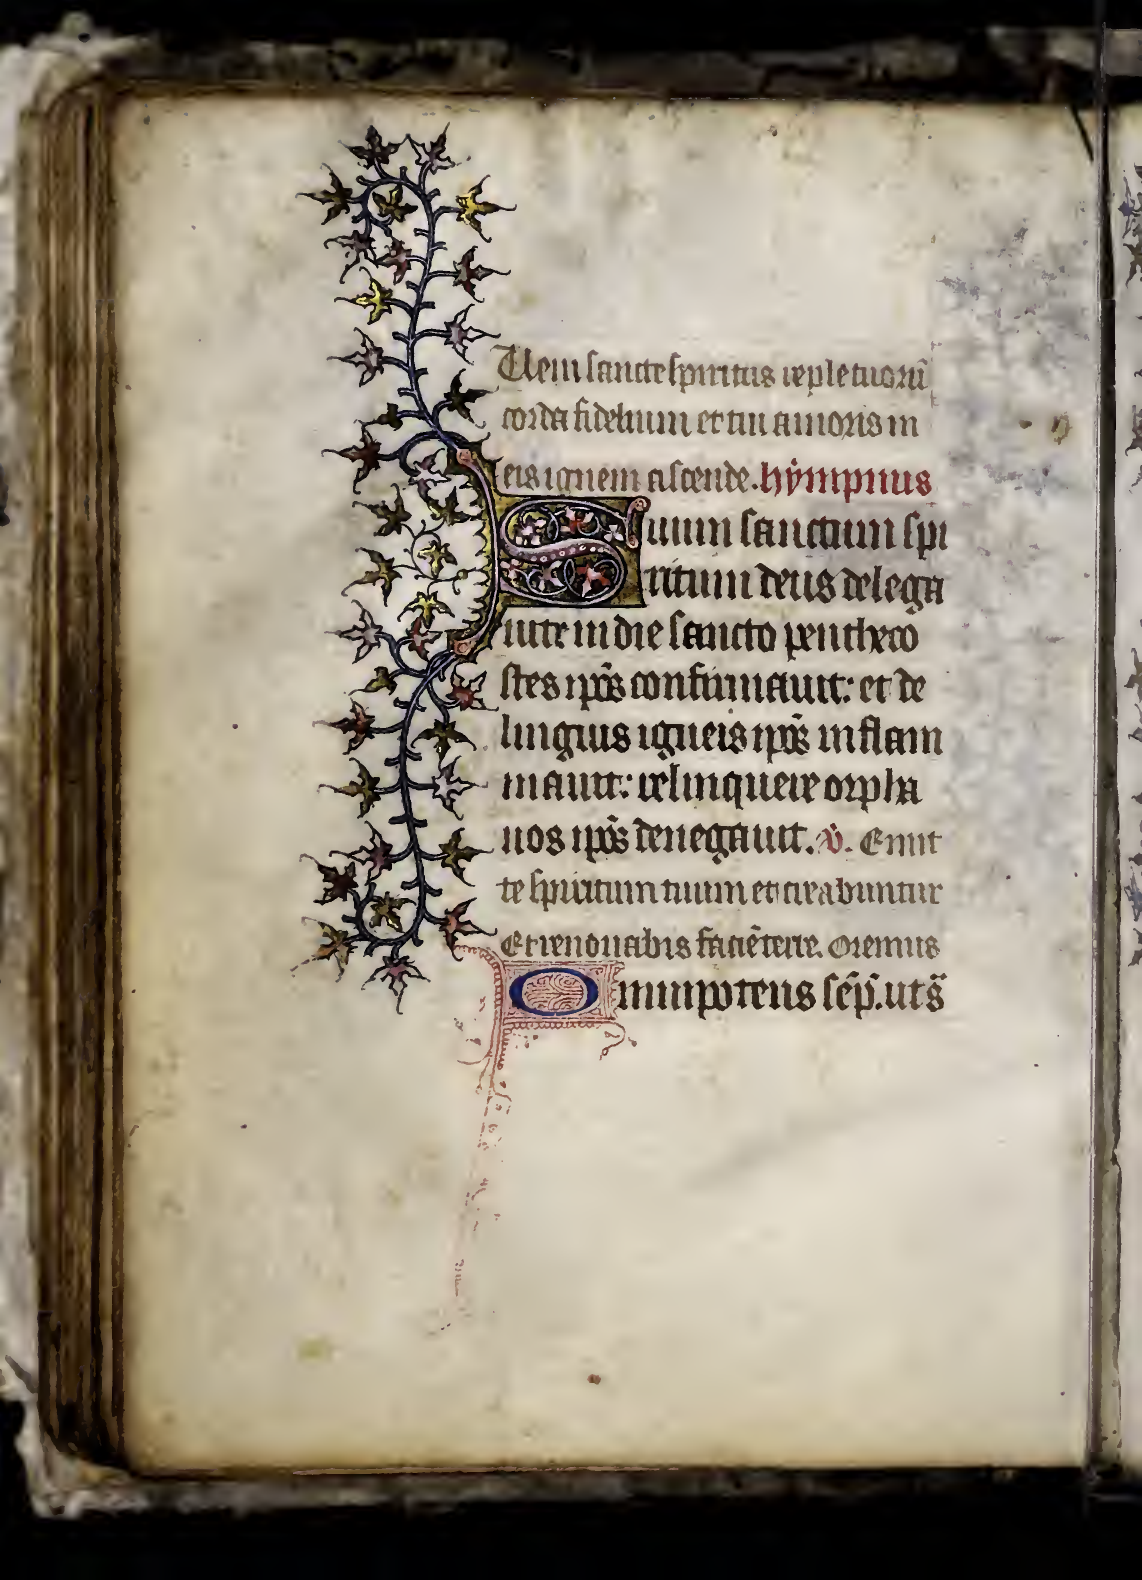 Ueni sancte spiritus reple tuorū
corda fidelium et tui amoris in
eis ignem ascende. hympnus
Suum sanctum spi
ritum deus delega
uit in die sancto pentheco
stes ip̄os confirmauit: et de
linguis igneis ip̄os inflam
mauit: relinquere orpha
nos ip̄os denegauit. v. Emit
te spiritum tuum et creabuntur
Et renouabis faciē terre. Oremus
Omnipotens sēp̄. ut s̄